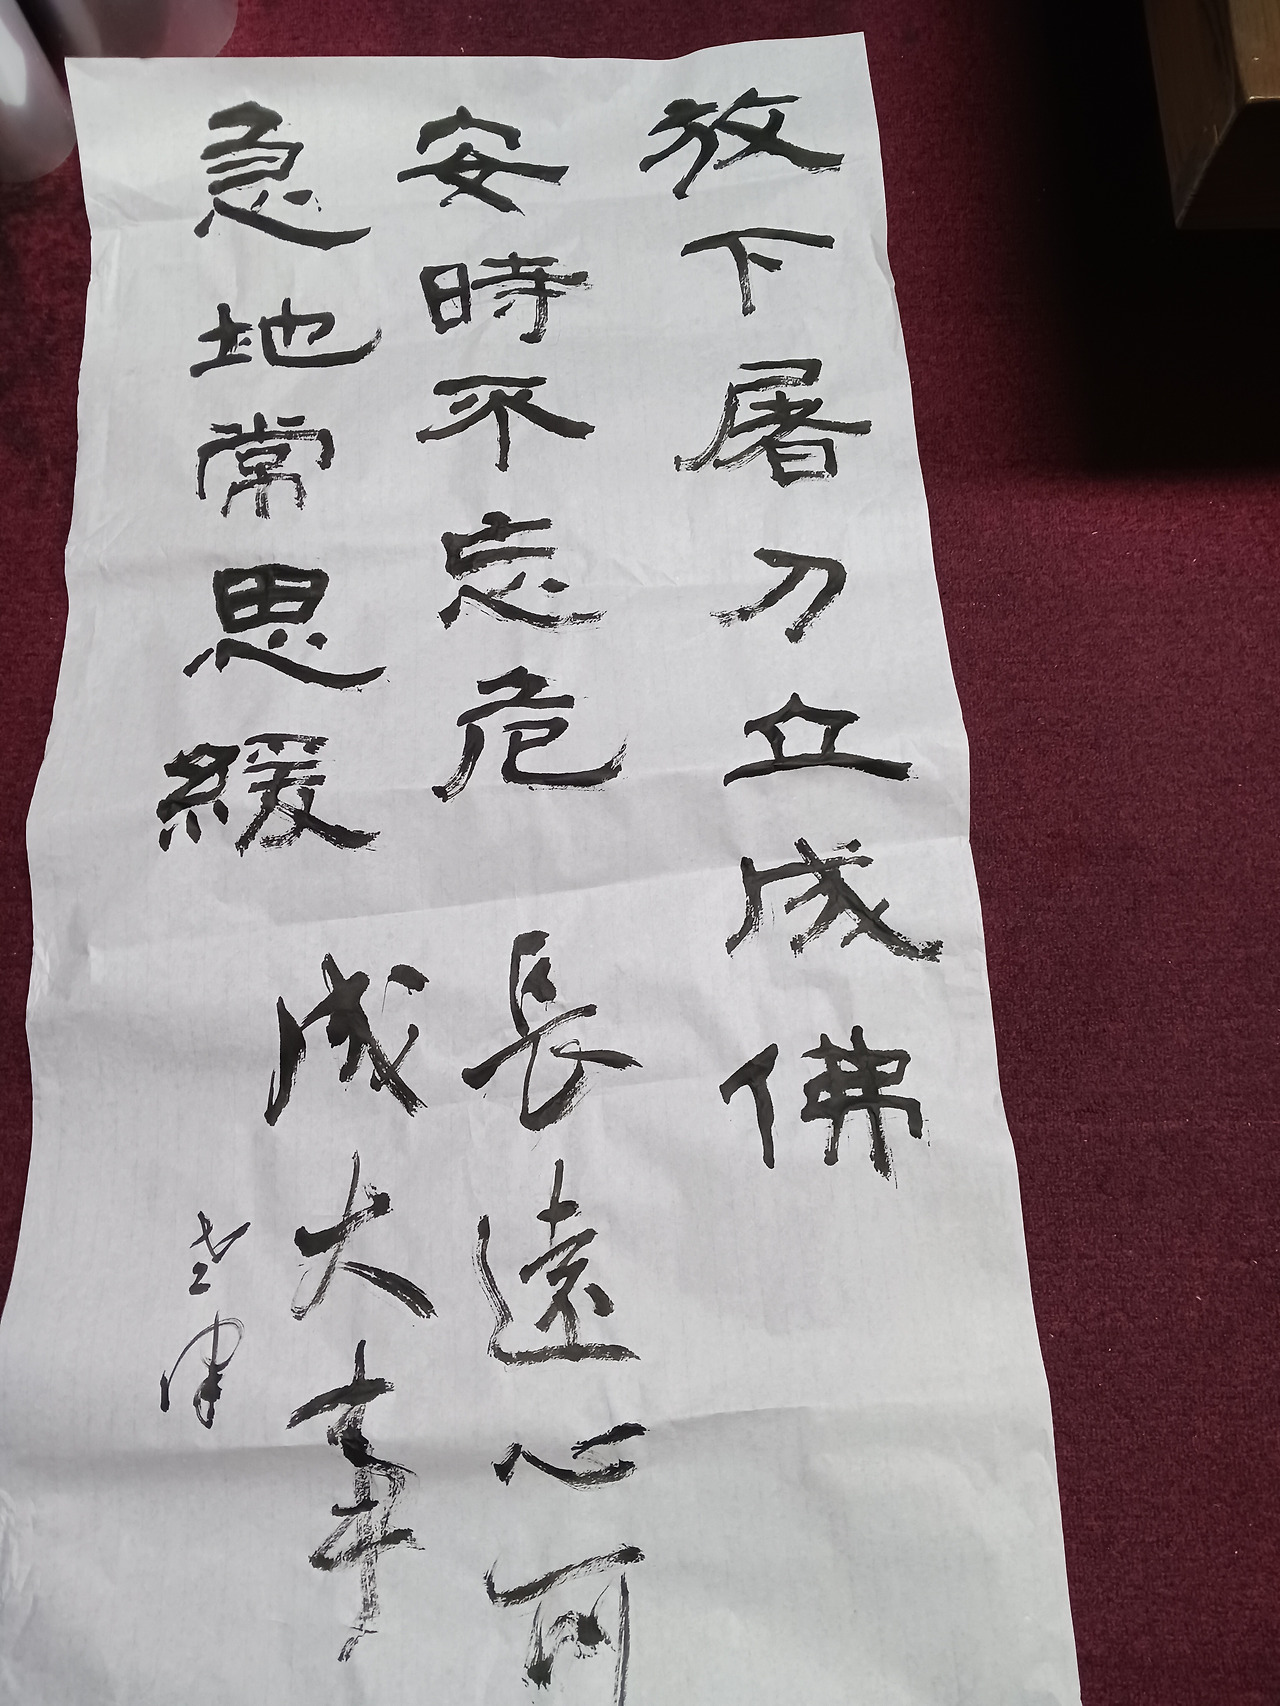 放下屠刀立成佛
安時不忘危
急地常思緩
長遠心可
成大事